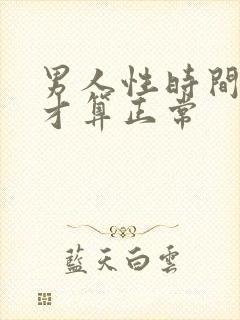 男人性時間
才算正常
藍天白雲